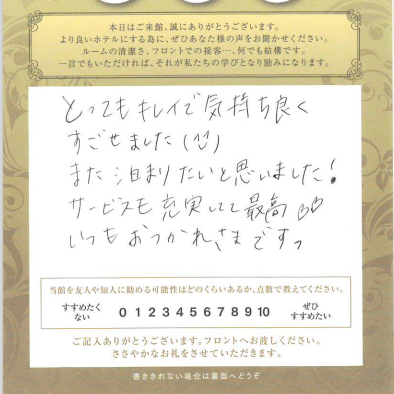 本日はご来館、誠にありがとうございます。
より良いホテルにする為に、ぜひあなた様の声をお聞かせください。
ルームの清潔さ、フロントでの接客…、何でも結構です。
一言でもいただければ、それが私たちの学びとなり励みになります。
とってもキレイで気持ち良く
すごせました(^^)
また泊まりたいと思いました!
サービスも充実してて最高♡♡
いつもおつかれさまですっ
当館を友人や知人に勧める可能性はどのくらいあるか、点数で教えてください。
すすめたくない 0 1 2 3 4 5 6 7 8 9 10 ぜひすすめたい
ご記入ありがとうございます。フロントへお渡しください。
ささやかなお礼をさせていただきます。
書ききれない場合は裏面へどうぞ